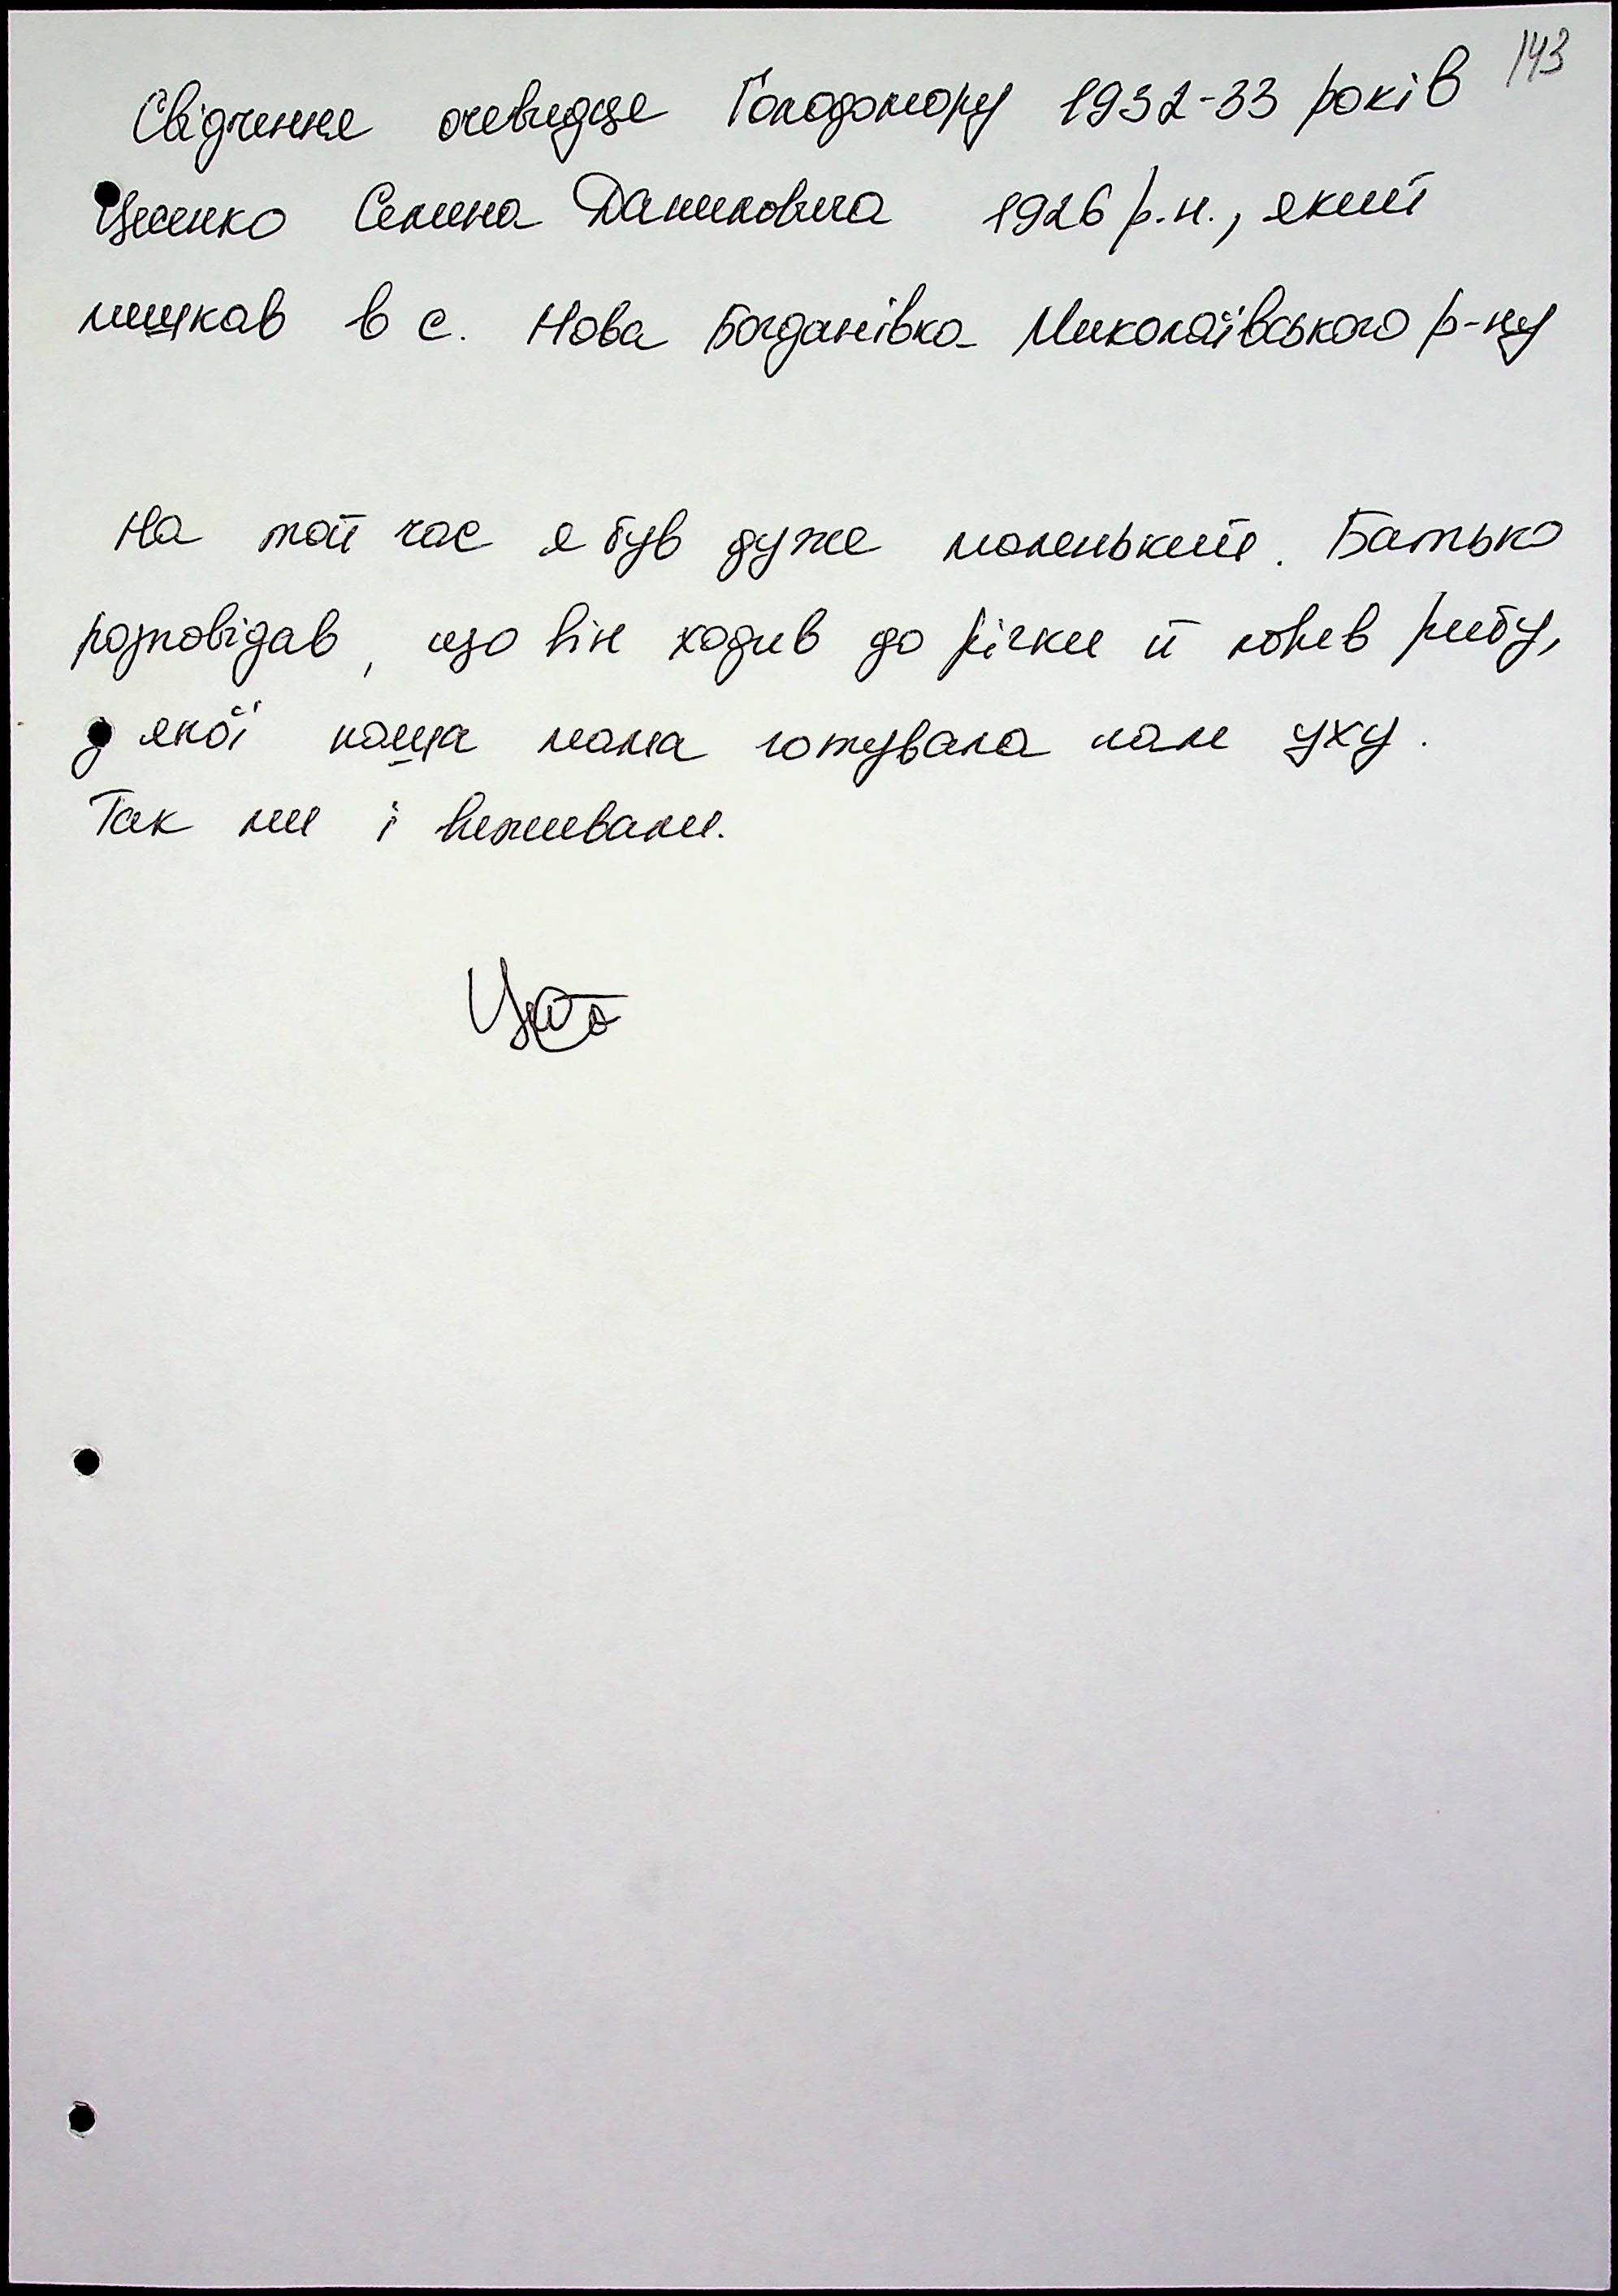 143
Свідчення очевидця Голодомору 1932-33 років
Семена Даниловича 1926 р.н., який
мешкав в с. Нова Богданівка Миколаївського р-ну
На той час я був дуже маленький. Батько
розповідав, що він ходив до річки й ловив рибу,
з якої наша мама готувала нам уху.
Так ми і виживали.